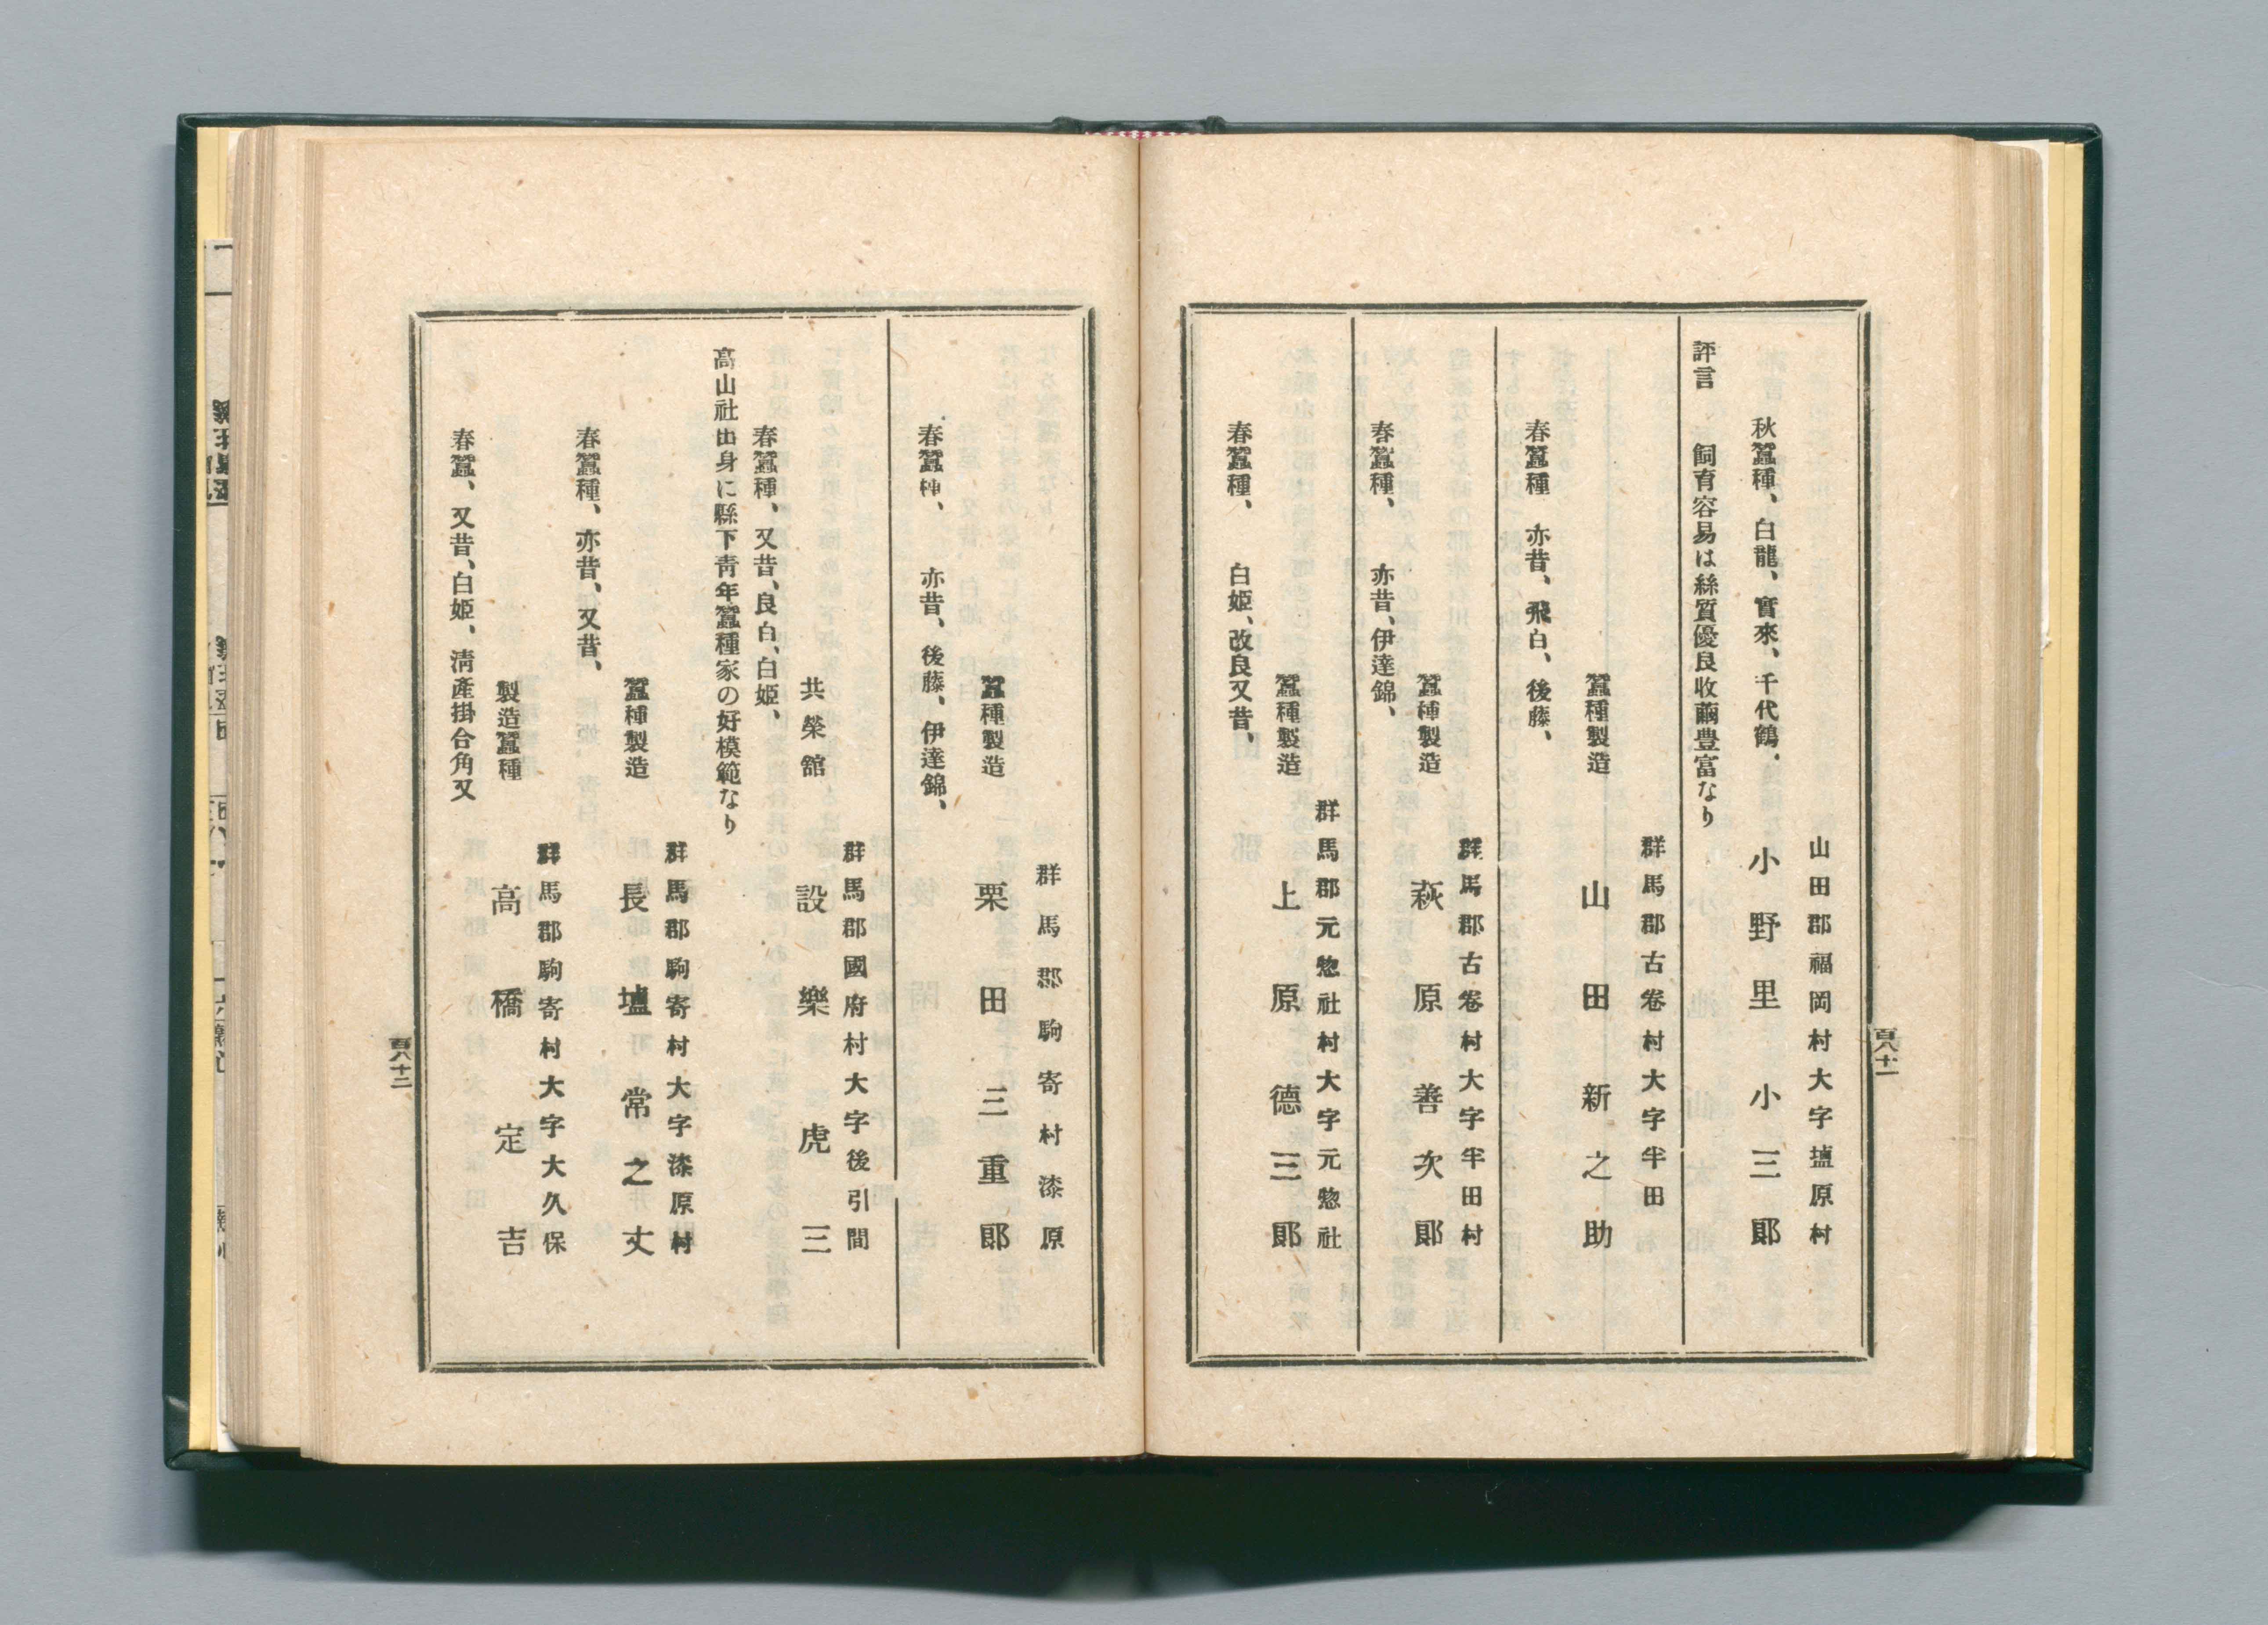 山田郡福岡村大字塩原村
小野里小三郎
秋蠶種、白龍、實來、千代鶴、
評言　飼育容易は絲質優良收繭豊富なり
群馬郡古巻村大字半田
蠶種製造　山田新之助
春蠶種　亦昔、飛白、後藤、
群馬郡古巻村大字半田村
蠶種製造　萩原善次郎
春蠶種、　亦昔、伊達錦、
群馬郡元惣社村大字元惣社
蠶種製造　上原德三郎
春蠶種、　白姫、改良又昔、
百八十一
群馬郡駒寄村漆原
蠶種製造　栗田三重郎
春蠶種、　亦昔、後藤、伊達錦、
群馬郡國府村大字後引間
共榮舘　設樂虎三
春蠶種、又昔、良白、白姫、
高山社出身に縣下靑年蠶種家の好模範なり
群馬郡駒寄村大字漆原村
蠶種製造　長壚常之丈
春蠶種、亦昔、又昔、
群馬郡駒寄村大字大久保
製造蠶種　高橋定吉
春蠶、又昔、白姫、淸產掛合角又
百八十二